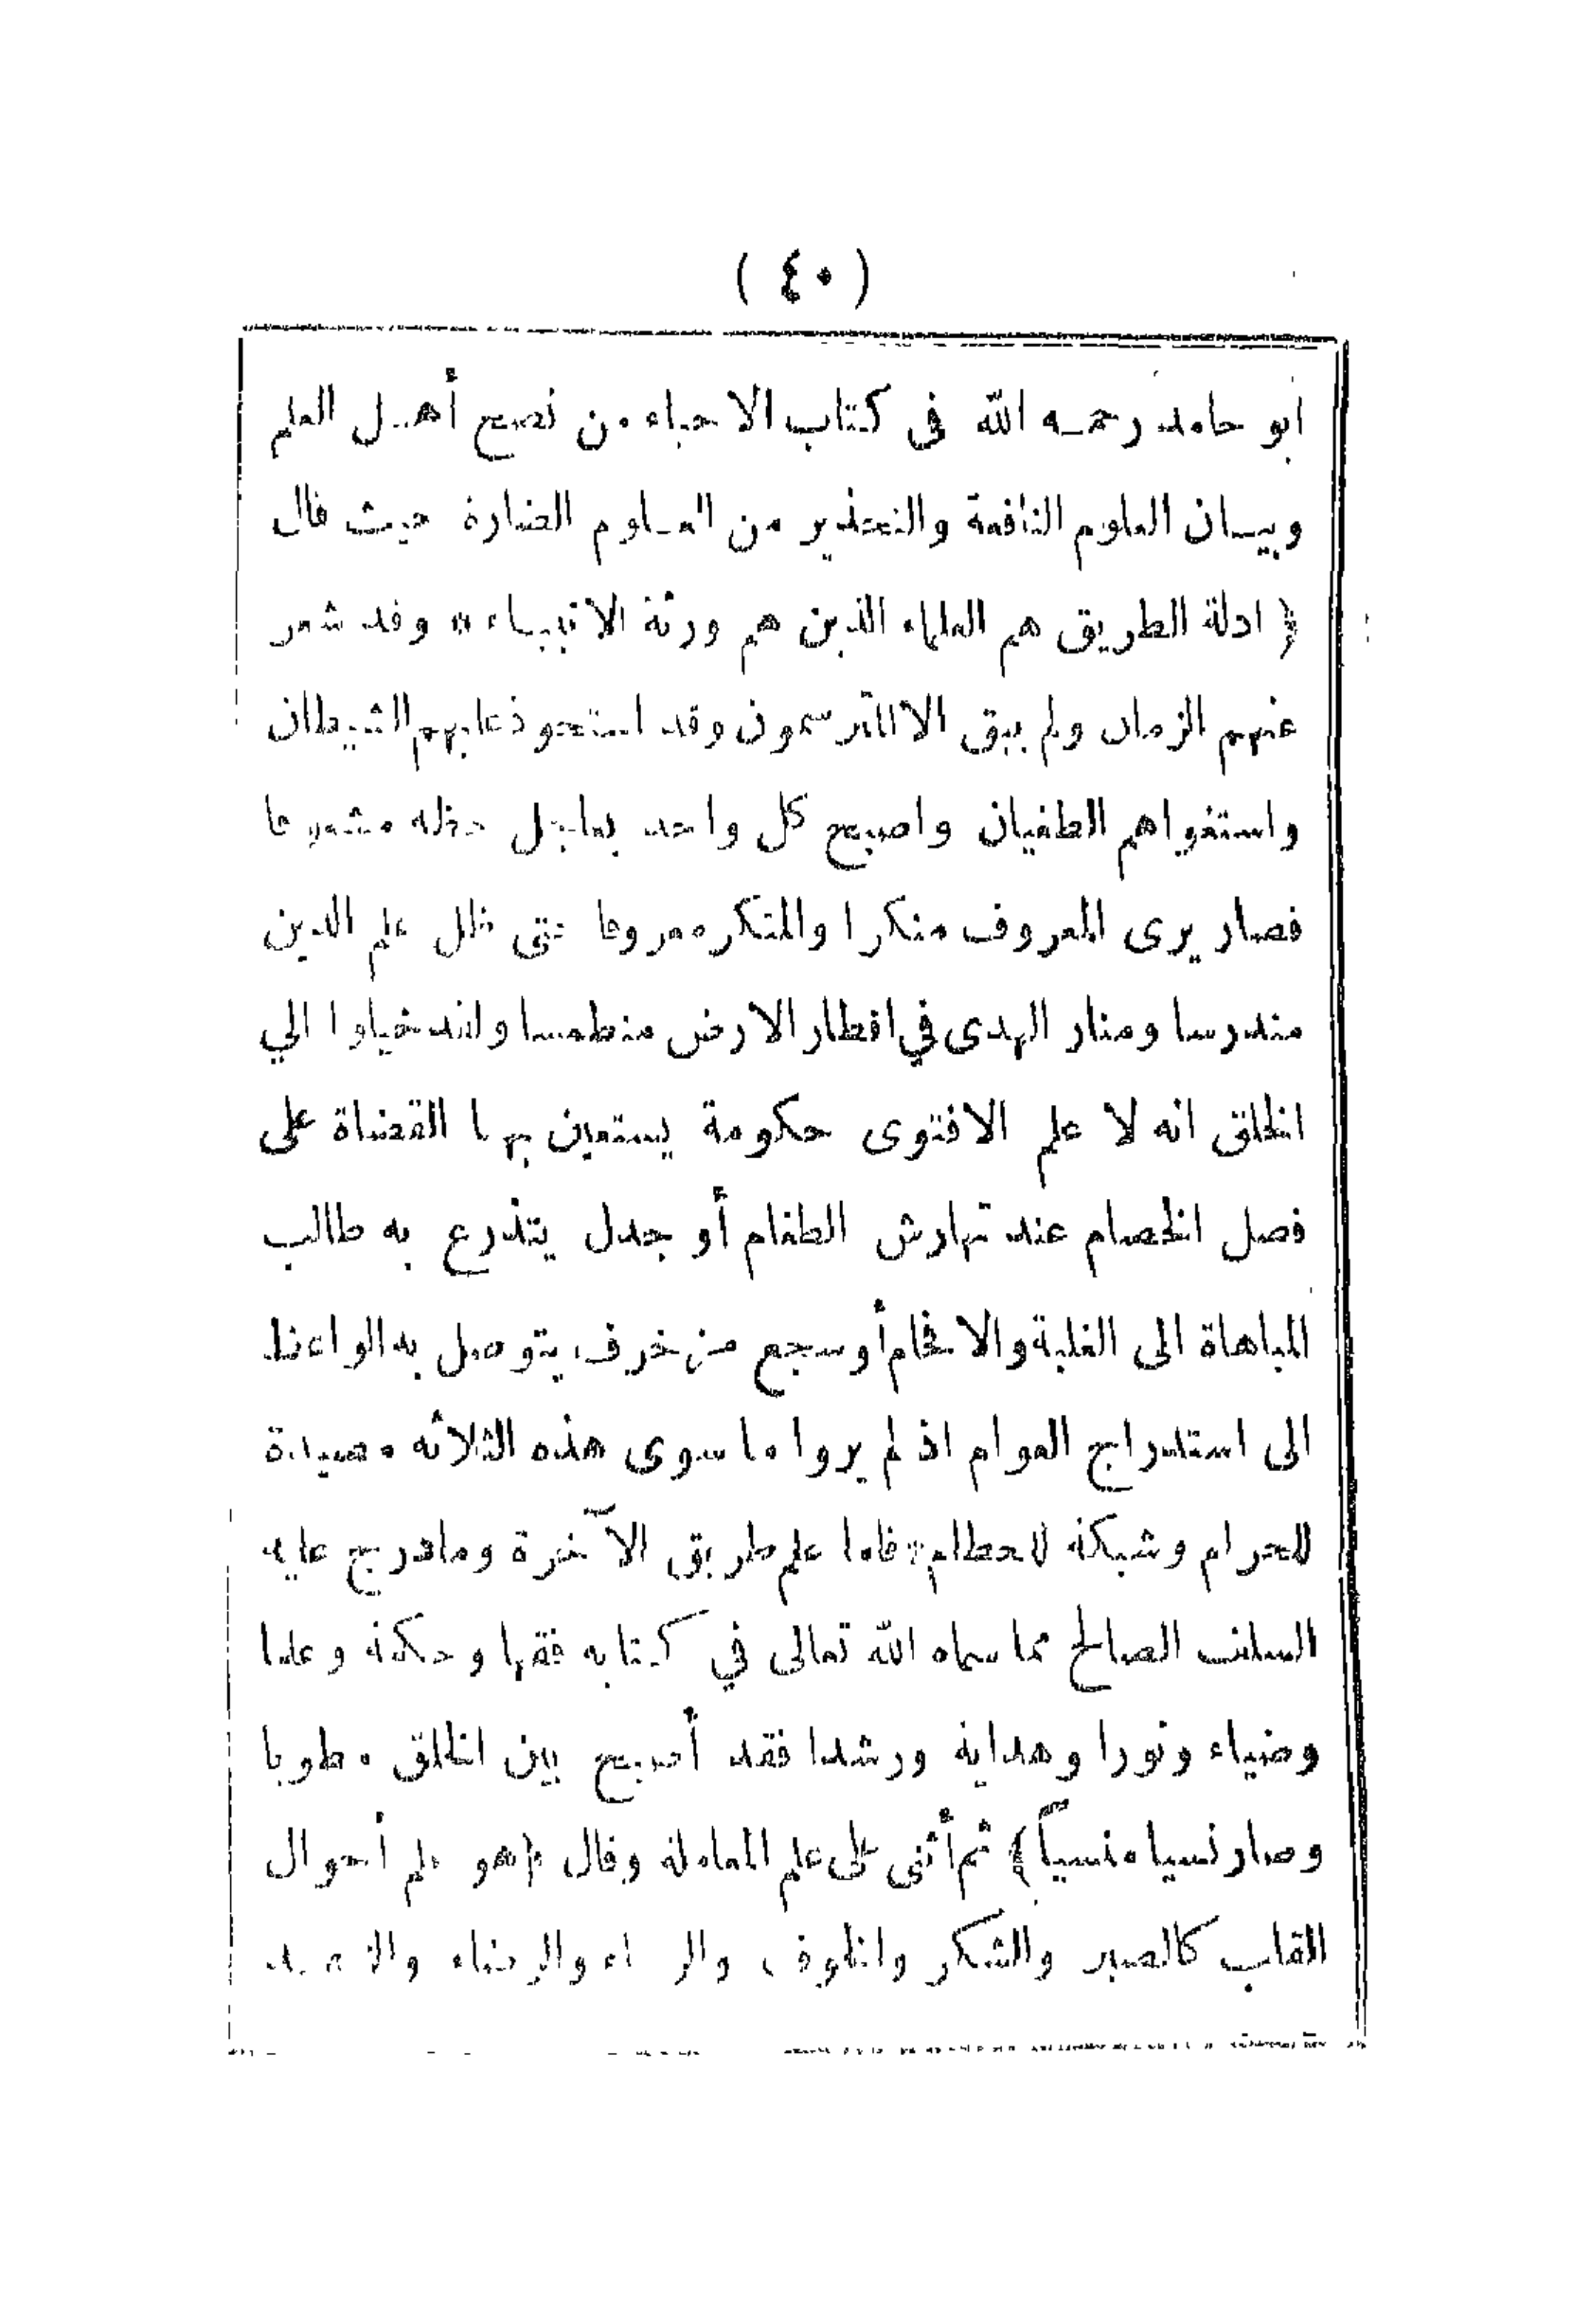 ( ٤٠ )
ابو حامد رحمه الله فى كتاب الاحياء من نصح أهل العلم
وبيان العلوم النافعة والتحذير من العلوم الضارة حيث قال
﴿ ادلة الطريق هم العلماء الذين هم ورثة الانبياء * وقد شغر
عنهم الزمان ولم يبق الا المترسمون وقد استحوذ عليهم الشيطان
واستغواهم الطغيان واصبح كل واحد بعاجل حظه مشغوفا
فصار يرى المعروف منكرا والمنكر معروفا حتى ظل علم الدين
مندرسا ومنار الهدى في اقطار الارض منطمسا ولقد خيلوا الي
الخلق انه لا علم الا فتوى حكومة يستعين بها القضاة على
فصل الخصام عند تهارش الطغام أو جدل يتذرع به طالب
المباهاة الى الغلبة والافحام أو سجع مزخرف يتوصل به الواعظ
الى استدراج العوام اذ لم يروا ما سوى هذه الثلاثه مصيدة
للحرام وشبكة للحطام * فاما علم طريق الآخرة وما درج عليه
السلف الصالح مما سماه الله تعالى في كتابه فقها وحكمة وعلما
وضياء ونورا وهداية ورشدا فقد أصبح بين الخلق مطويا
وصار نسيا منسياً ﴾ ثم أثنى على علم المعاملة وقال ﴿ هو علم أحوال
القلب كالصبر والشكر والخوف والرجاء والرضاء والزهد